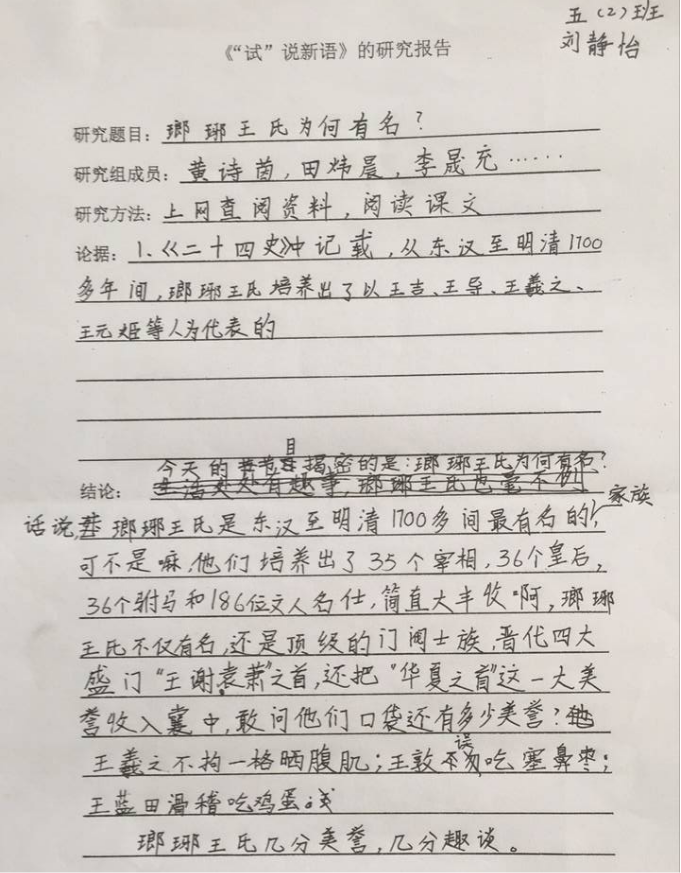 五（2）班
刘静怡
《“试”说新语》的研究报告
研究题目：瑯琊王氏为何有名？
研究组成员：黄诗茵，田炜晨，李晟充……
研究方法：上网查阅资料，阅读课文
论据：1.《二十四史》中记载，从东汉至明清1700
多年间，瑯琊王氏培养出了以王吉、王导、王羲之、
王元姬等人为代表的
今天的 目 揭密的是：瑯琊王氏为何有名？
结论：生活处处有趣事，瑯琊王氏也毫不例
话说，瑯琊王氏是东汉至明清1700多间最有名的家族，
可不是嘛，他们培养出了35个宰相，36个皇后，
36个驸马和186位文人名仕，简直大丰收啊，瑯琊
王氏不仅有名，还是顶级的门阀士族，晋代四大
盛门“王谢袁萧”之首，还把“华夏之首”这一大美
誉收入囊中，敢问他们口袋还有多少美誉？
王羲之不拘一格晒腹肌；王敦误吃塞鼻枣；
王蓝田滑稽吃鸡蛋
瑯琊王氏几分美誉，几分趣谈。